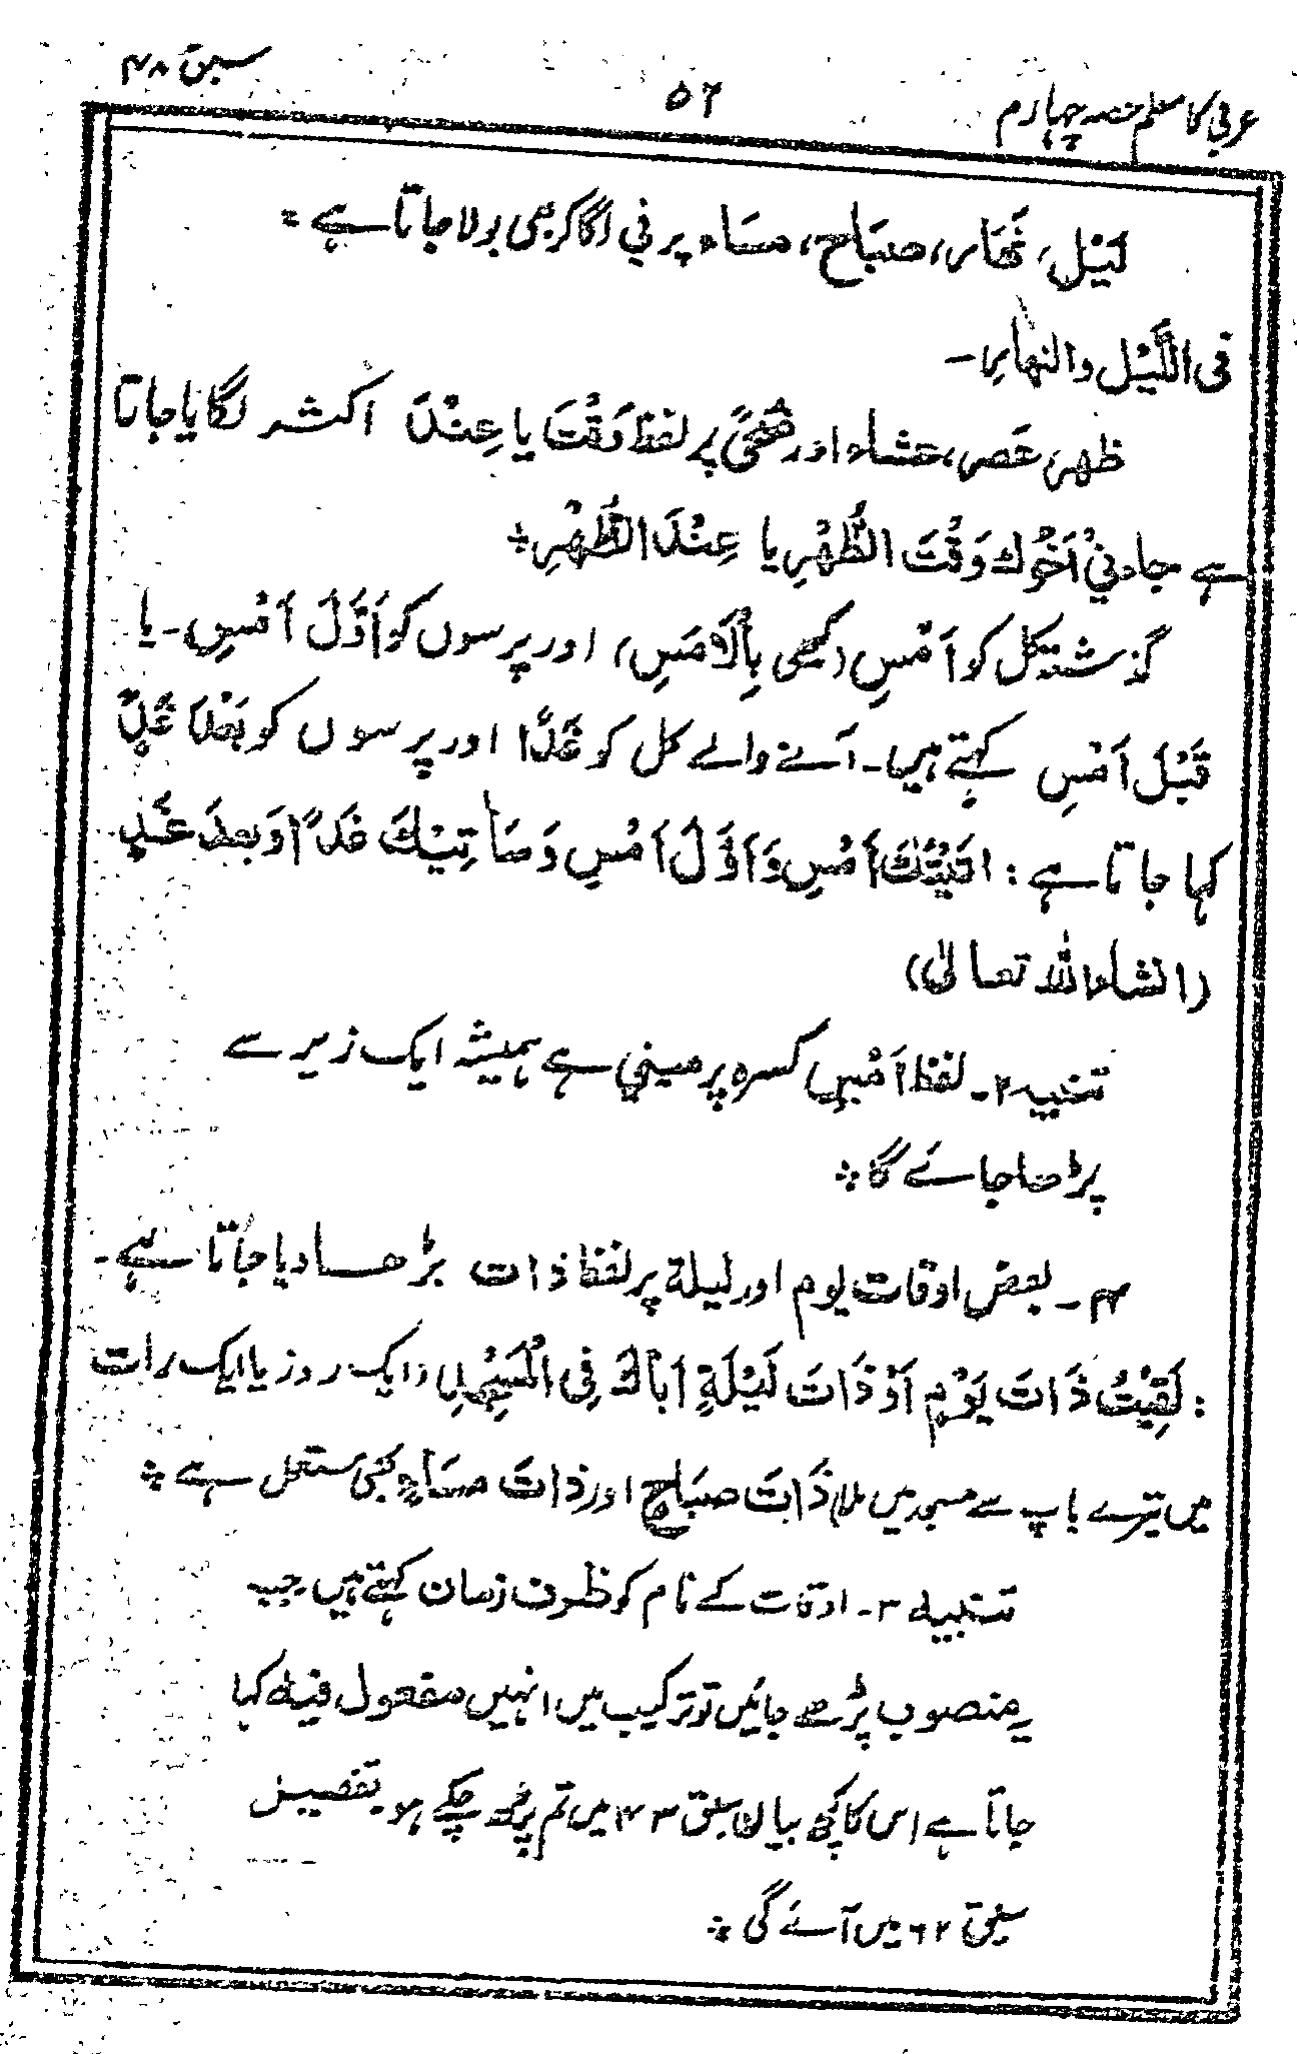 عربی کا معلم حصہ چہارم
۵۶
سبق ۴۸
لَیْل، نَھَار، صبَاح، مسَاء پر فی لگا کر بھی بولا جاتا ہے :
فی اللَّیْلِ والنھارِ ـ
ظھر، عَصر، عشاء اور ضُحیً پر لفظ وَقْتَ یا عِنْدَ اکثر لگایا جاتا
ہے جاءنیْ اَخُوْكَ وَقْتَ الظُّھْرِ یا عِنْدَ الظُّھْرِ ؞
گزشتہ کل کو اَمْسِ (کبھی بِالْاَمْسِ) اور پرسوں کو اَوَّلَ اَمْسِ ـ یا
قَبْلَ اَمْسِ کہتے ہیں ـ آنے والے کل کو غَدًا اور پرسوں کو بَعْدَ غَدٍ
کہا جاتا ہے : اَتَیْتُكَ اَمْسِ وَاَوَّلَ اَمْسِ وَسَاٰتِیْكَ غَدًا وَبعدَ غَدٍ
(انشاءاللہ تعالیٰ)
تنبیہ ۲ ـ لفظ اَمْسِ کسرہ پر مبنی ہے ہمیشہ ایک زیر سے
پڑھا جائے گا ؞
۴ ـ بعض اوقات یوم اور لیلة پر لفظ ذات بڑھا دیا جاتا ہے ـ
: لَقِیْتُ ذَاتَ یَوْمٍ اَوْ ذَاتَ لَیْلَةٍ اَبَاكَ فِی الْمَسْجِدِ (ایک روز یا ایک رات
میں تیرے باپ سے مسجد میں ملا) ذَاتَ صبَاحٍ اور ذاتَ مسَاءٍ بھی مستعمل ہے ؞
تنبیہ ۳ ـ اوقات کے نام کو ظرف زمان کہتے ہیں جب
یہ منصوب پڑھے جائیں تو ترکیب میں انہیں مفعول فیہ کہا
جاتا ہے اس کا کچھ بیان سبق ۴۳ میں تم پڑھ چکے ہو بتفصیل
سبق ۶۲ میں آئے گی ؞